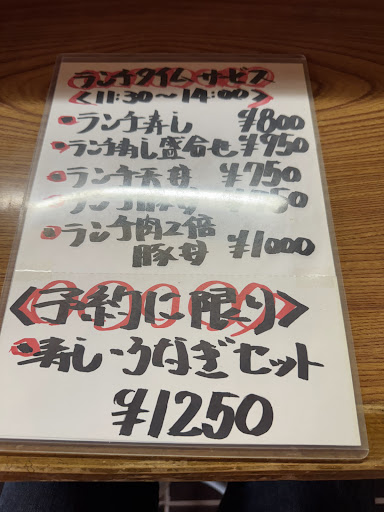 ランチタイムサービス
<11:30～14:00>
・ランチ寿し ¥800
・ランチ寿し盛合せ ¥950
・ランチ天丼 ¥750
・ランチ 50
・ランチ肉2倍
豚丼 ¥1000
<予約に限り>
・寿し・うなぎセット
¥1250